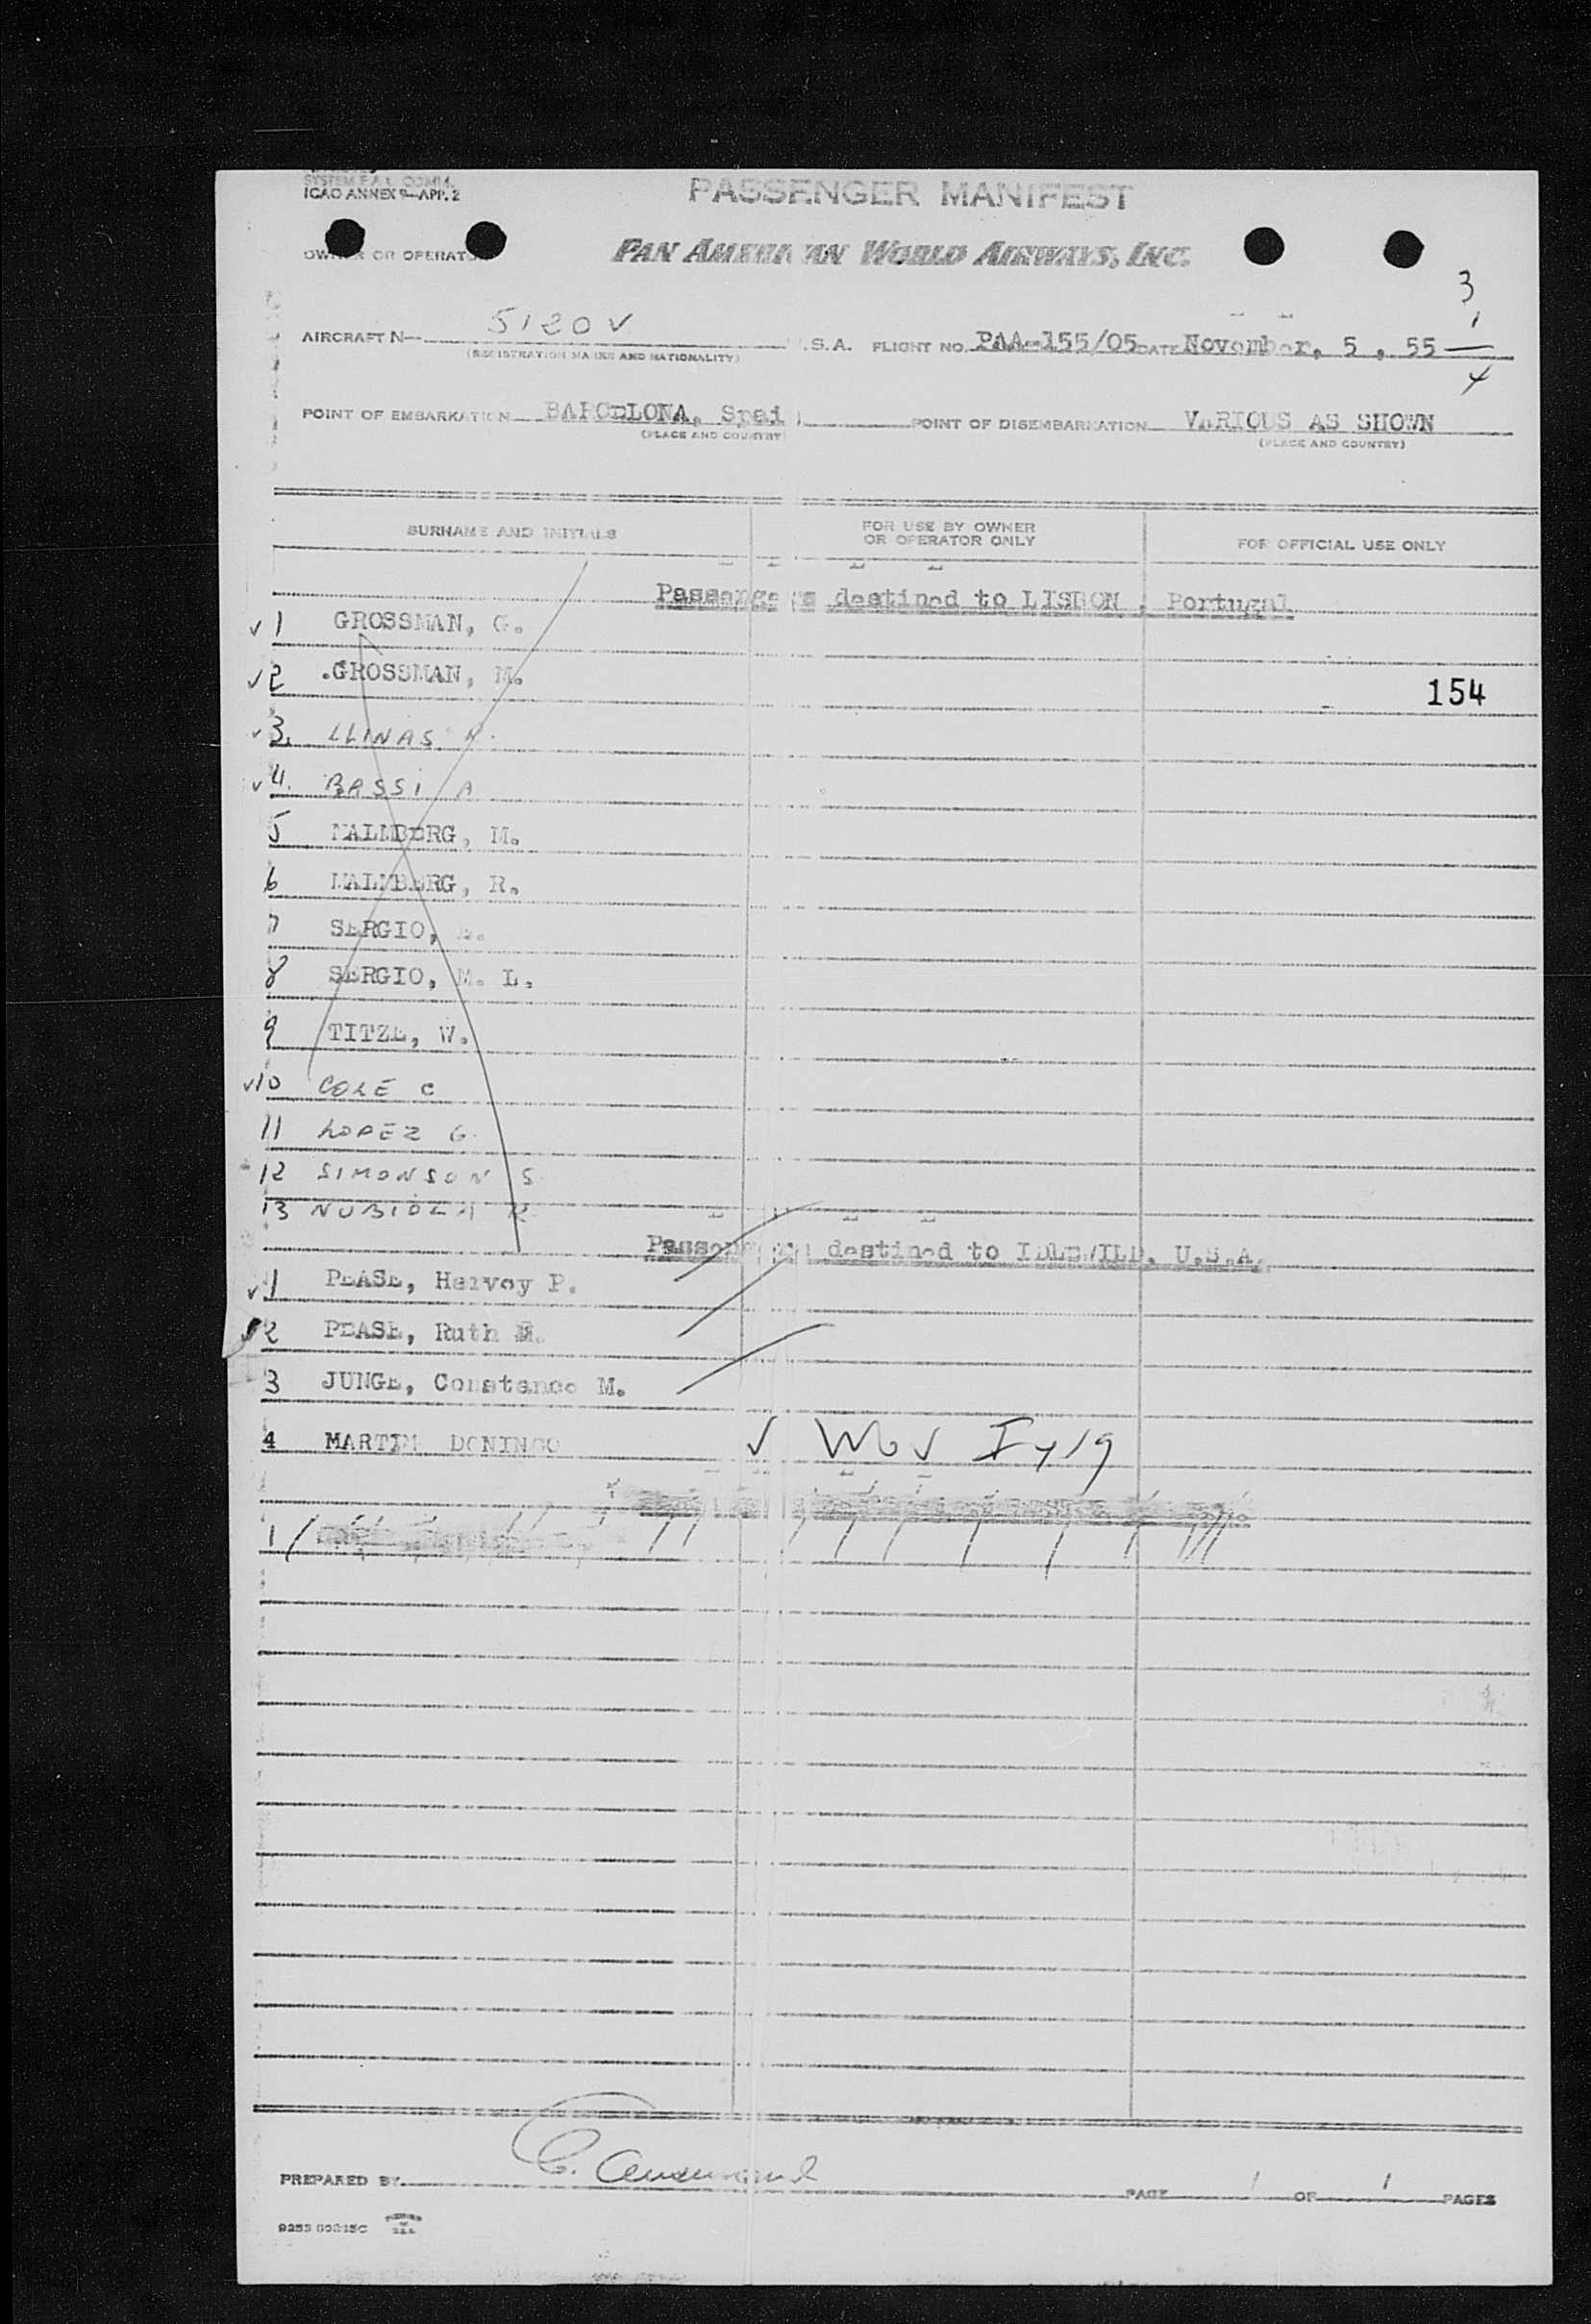 SYSTEM F.A.L. COMM.
ICAO ANNEX 9—APP. 2
PASSENGER MANIFEST
OWNER OR OPERATOR
PAN AMERICAN WORLD AIRWAYS, INC.
3
1
4
AIRCRAFT N— 5120V U.S.A. FLIGHT NO. PAA-155/05 DATE November, 5 , 55
(REGISTRATION MARKS AND NATIONALITY)
POINT OF EMBARKATION BARCELONA, Spain POINT OF DISEMBARKATION VARIOUS AS SHOWN
(PLACE AND COUNTRY) (PLACE AND COUNTRY)
SURNAME AND INITIALS FOR USE BY OWNER OR OPERATOR ONLY FOR OFFICIAL USE ONLY
Passengers destined to LISBON , Portugal
✓ 1 GROSSMAN, G.
✓ 2 .GROSSMAN, M.
154
✓ 3. LLINAS
✓ 4. BASSI A
5 MALMBERG, M.
6 MALMBERG, R.
7 SERGIO,
8 SERGIO, M. L.
9 TITZE, W.
✓10 COLE C
11 LOPEZ G.
12 SIMONSON S
13 NUBIOLA R
Passengers destined to IDLEWILD, U.S.A.
✓ 1 PEASE, Harvey P.
✓ 2 PEASE, Ruth
3 JUNGE, Constance M.
4 MARTIN DOMINGO ✓
1
PREPARED BY C. PAGE 1 OF 1 PAGES
PRINTED IN U.S.A.